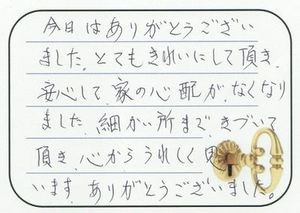 今日はありがとうござい
ました。とてもきれいにして頂き、
安心して、家の心配が、なくなり
ました。細かい所まで、きづいて
頂き、心からうれしく思
います。ありがとうございました。